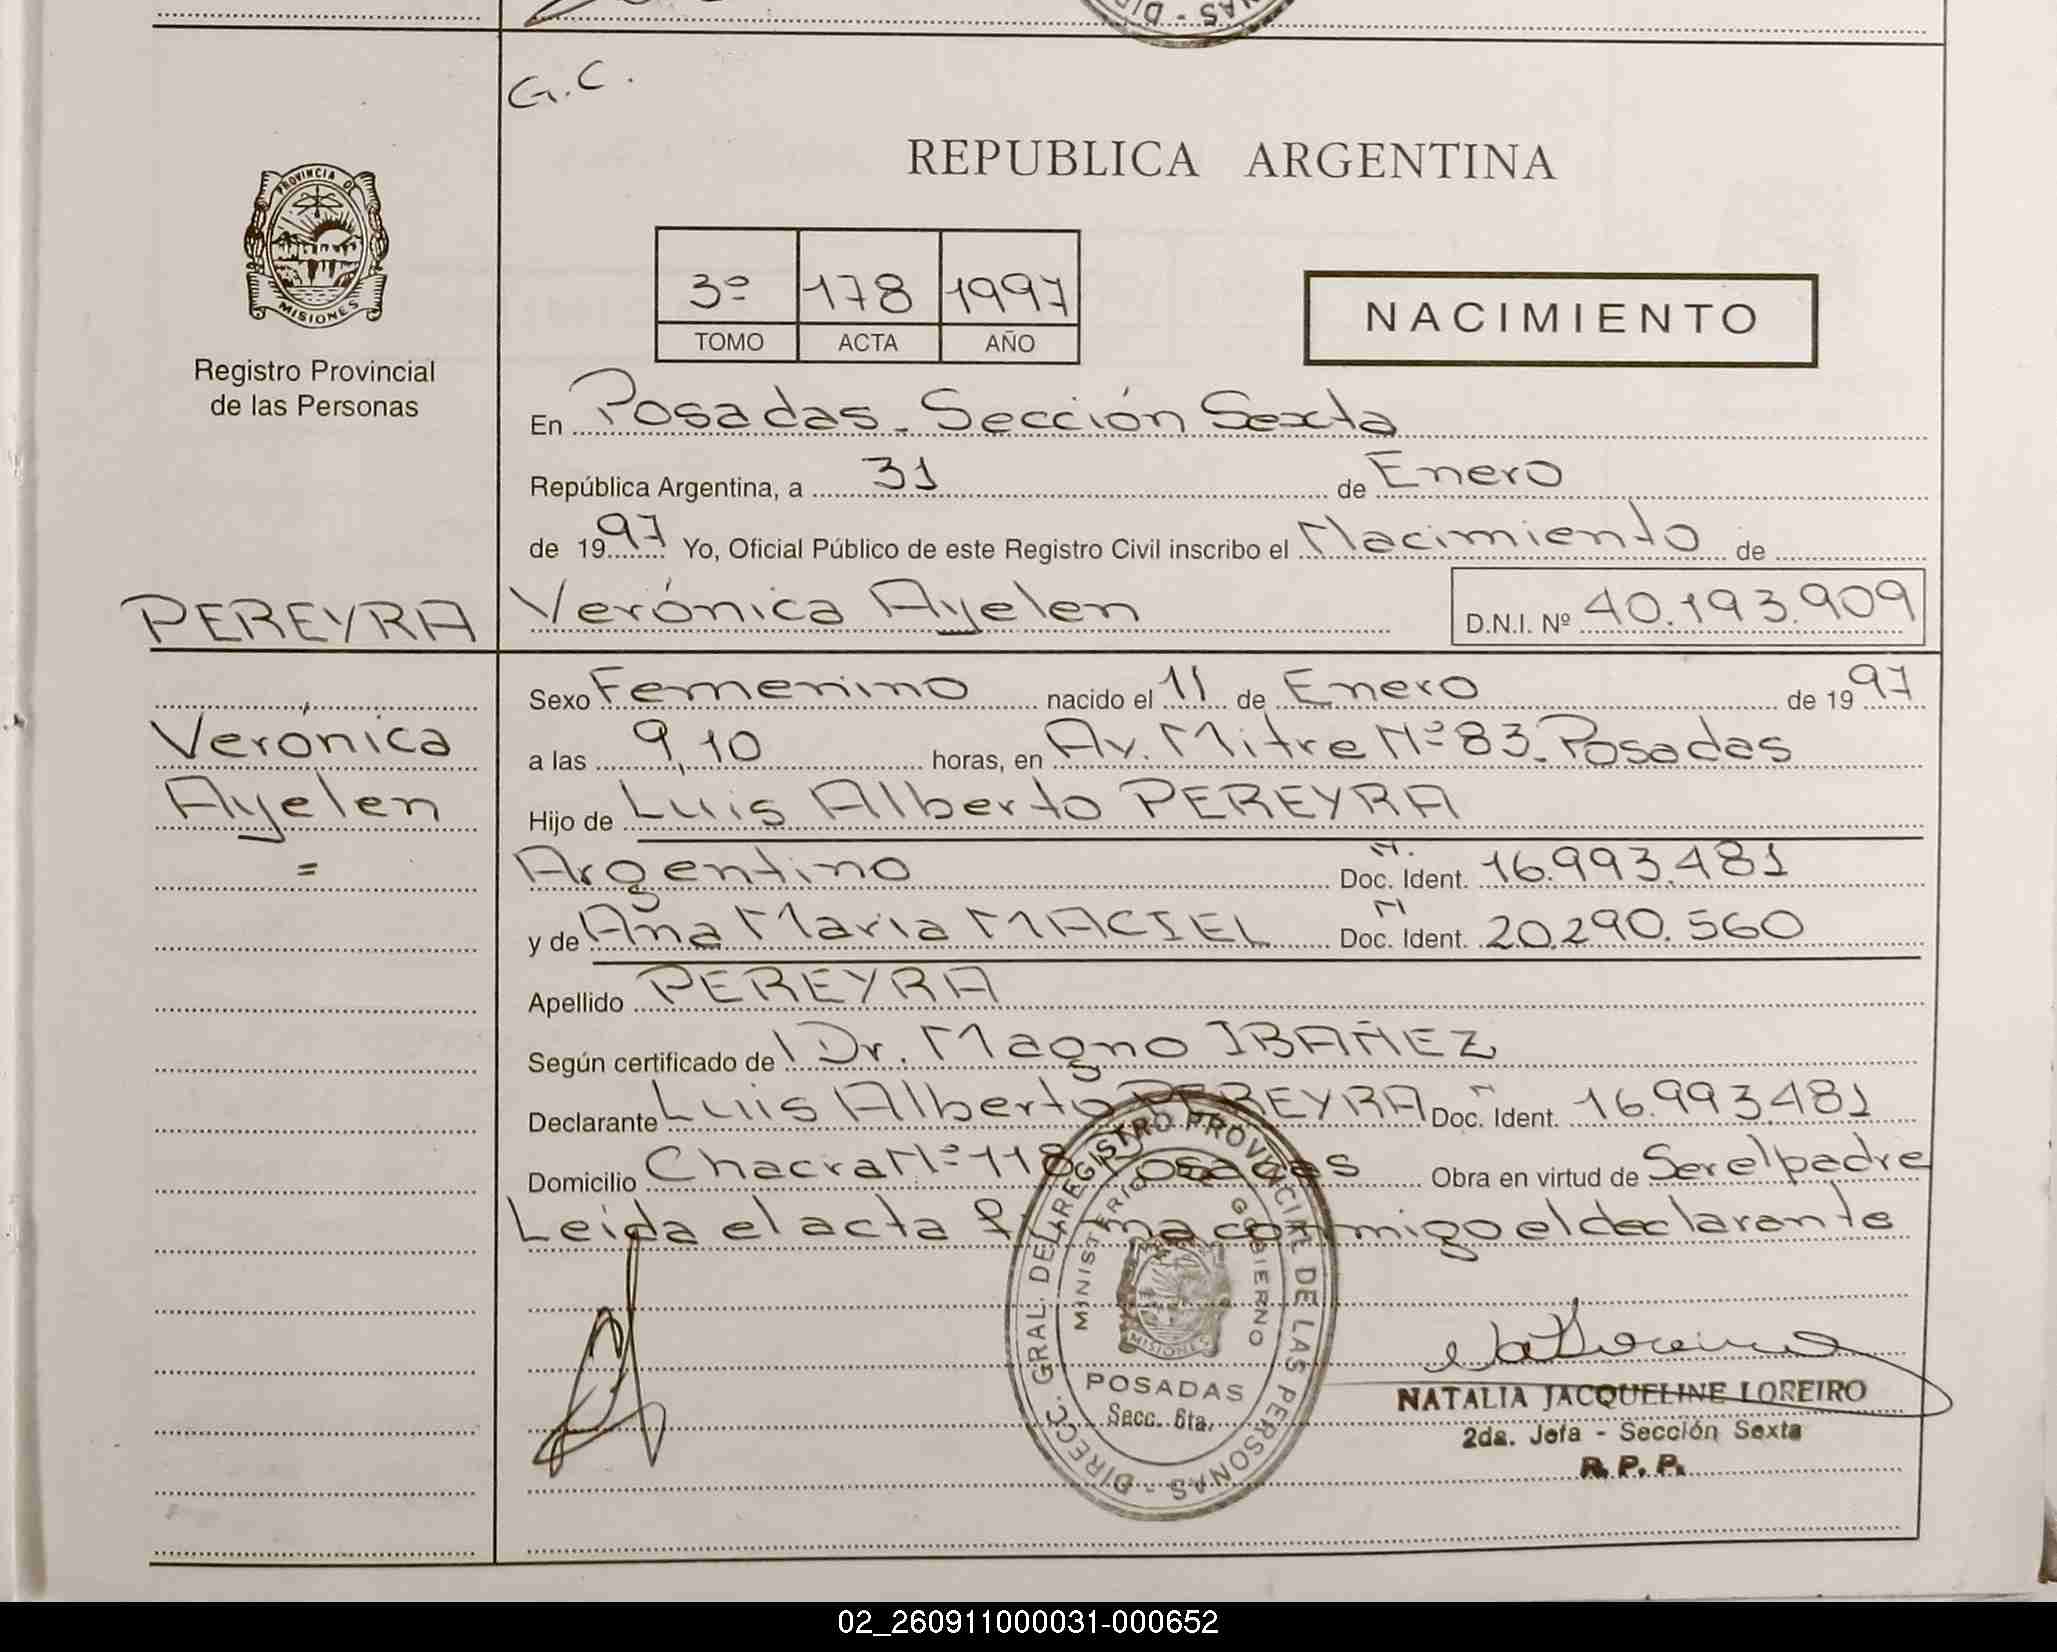 G.C.
REPUBLICA ARGENTINA
PROVINCIA DE
MISIONES
Registro Provincial
de las Personas
3º 178 1997
TOMO ACTA AÑO
NACIMIENTO
En Posadas - Sección Sexta
República Argentina, a 31 de Enero
de 1997 Yo, Oficial Público de este Registro Civil inscribo el Nacimiento de
PEREYRA Verónica Ayelen D.N.I. Nº 40.193.909
Sexo Femenino nacido el 11 de Enero de 1997
Verónica
a las 9,10 horas, en Av. Mitre Nº 83. Posadas
Ayelen
Hijo de Luis Alberto PEREYRA
=
Argentino Doc. Ident. N. 16.993.481
y de Ana Maria MACIEL Doc. Ident. N 20.290.560
Apellido PEREYRA
Según certificado de Dr. Magno IBAÑEZ
Declarante Luis Alberto PEREYRA Doc. Ident. N 16.993.481
Domicilio Chacra Nº 118 Posadas Obra en virtud de Ser el padre
Leida el acta firma conmigo el declarante
DIRECC. GRAL. DEL REGISTRO PROVINCIAL DE LAS PERSONAS -
MINISTERIO DE GOBIERNO
MISIONES
POSADAS
Secc. 6ta.
NATALIA JACQUELINE LOREIRO
2da. Jefa - Sección Sexta
R. P. P.
02_260911000031-000652